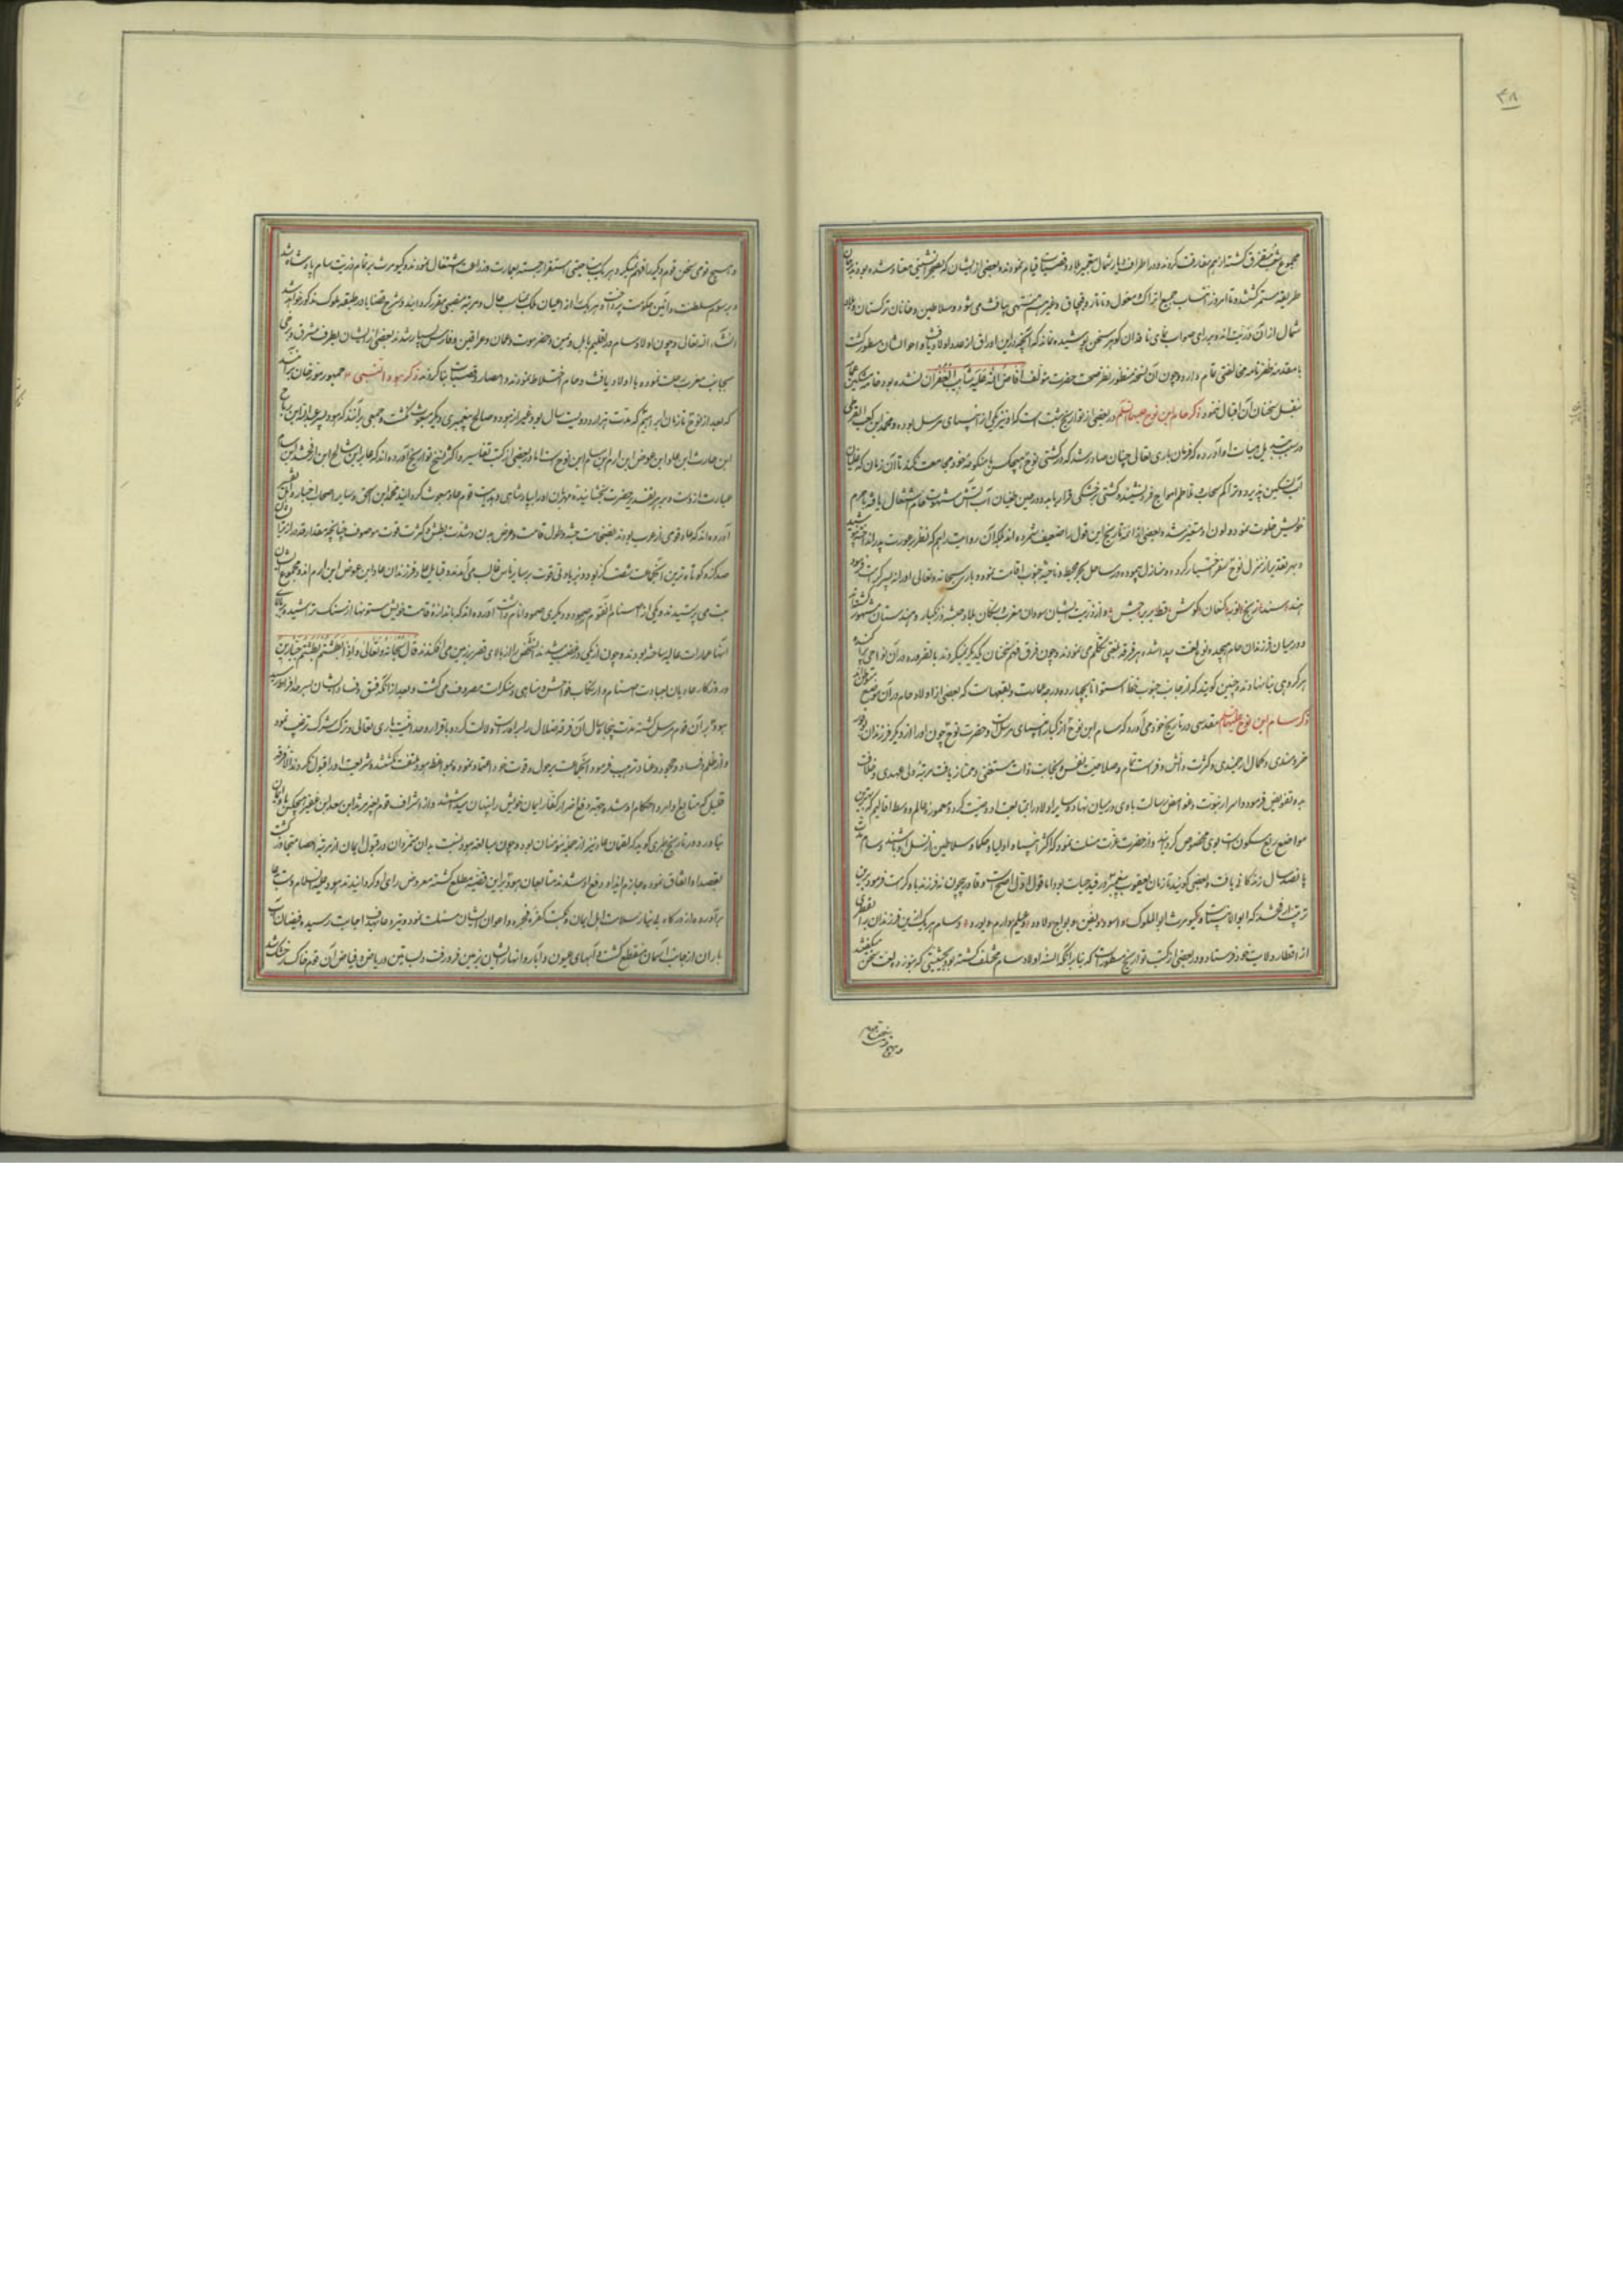 ۴۸
مجموع متفرق کشته از هم مفارقت کردند و در اطراف دیار شمال بتعمیر بلاد و قصبات قیام نمودند و بعضی از ایشان که بصحرانشینی معتاد شده بودند
طریقه مستمر کشتند و تا امروز انتساب جمیع اتراک مغول و تاتار و قبچاق و غیرهم منتهی بیافث می شود و سلاطین و خانان ترکستان و
شمال از آن ذریت اند و بر رای صواب نمای ناقدان کوهر سخن پوشیده نماند که آنچه در این اوراق از عدد اولاد یافث و احوال ایشان مسطور کشت
با مقدمه ظفرنامه مخالفتی تمام دارد و چون آن نسخه منظور نظر صحت حضرت مؤلف افاض الله علیه شآبیب الغفران نشده بود خامه مشکین
بنقل سخنان آن اقبال ننمود ذکر حام ابن نوح علیهما السلم در بعضی از تواریخ مثبت است که او نیز یکی از انبیای مرسل بوده و محمد ابن کعب القرظی
در سبب تبدیل هیأت او آورده که فرمان باری تعالی چنان صادر شد که در کشتی نوح هیچکس با منکوحه خود مجامعت نکند تا آن زمان که طوفان
تسکین پذیرد و تراکم سحاب و تلاطم امواج فرو نشیند و کشتی بر خشکی قرار یابد و در حین طغیان آب آتش شهوت حام اشتعال یافته با حرم
خویش خلوت نمود و لون او متغیر شد و بعضی از ائمه تاریخ این قول را ضعیف شمرده اند
و بهر تقدیر از منزل نوح سفر اختیار کرده و منازل پیموده در ساحل بحر محیط و ناحیه جنوب اقامت نمود و باری سبحانه و تعالی او را نه پسر کرامت فرمود
هند و سند و زنج و نوبه و کنعان و کوش و قبط و بربر و حبش و از ذریت ایشان سودان مغرب و سکان بلاد حبشه و زنکبار و هندوستان
و در میان فرزندان حام هیجده نوع لغت پیدا شد و هر فرقه بلغتی تکلم می نمودند و چون فرق فهم سخنان یکدیکر نمیکردند بالضروره در آن نواحی
هر کروهی بنایی نهادند و چنین کویند که از جانب جنوب خط استوا تا بچهارده درجه عمارت و بقعهاست که بعضی از اولاد حام در آن موضع
ذکر سام ابن نوح علیهما السلم مقدسی در تاریخ خود می آورد که سام ابن نوح از کبار انبیای مرسل است و حضرت نوح چون او را از دیکر فرزندان
خردمندی و کمال ارجمندی و کثرت دانش و فراست تمام و صلاحیت نفس و نجابت ذات مستثنی و ممتاز یافت مرتبه ولی عهدی و خلافت
بدو تفویض فرمود و اسرار نبوت و غوامض رسالت با وی در میان نهاد و سایر اولاد را بمتابعت او وصیت کرد و معموره عالم و وسط اقالیم که بهترین
مواضع ربع مسکون است بوی مخصوص کردانید و از حضرت عزت مسئلت نمود که اکثر انبیا و اولیا و حکما و سلاطین از نسل او باشند و سام
پانصد سال زندکانی یافت و بعضی کویند تا زمان یعقوب پیغمبر در قید حیات بود اما قول اول اصح است و قادر بیچون نه فرزند باو کرامت فرمود برین
ترتیب ارفخشد که ابوالانبیاست و کیومرث ابوالملوک و اسود و یفن و یورج و لاود و عیلم و ارم و بورد و سام هر یک ازین فرزندان را بقطری
از اقطار ولایت خود فرستاد و در بعضی از کتب تواریخ مسطور است که بنابر آنکه السنه اولاد سام مختلف کشته بود بحیثیتی که بنوزده لغت سخن میکفتند
و هیچ قومی سخن قوم
و هیچ قومی سخن قوم دیکر را فهم نمیکرد و هر یک بناحیتی استقرار جسته بعمارت و زراعت اشتغال نمودند و کیومرث بر تمام ذریت سام پادشاه شد
و برسوم سلطنت و آئین حکومت پرداخت و هر یک را از اعیان ملک مناسب حال و مرتبه منصبی مقرر کردانید و شرح قضایا در طبقه ملوک مذکور خواهد شد
انشاء الله تعالی و چون اولاد سام در اقلیم بابل و یمن و حضرموت و عمان و عراقین و فارس بسیار شدند بعضی از ایشان بطرف مشرق و برخی
بجانب مغرب رحلت نموده با اولاد یافث و حام اختلاط نمودند و امصار و قصبات بنا کردند ذکر هود النبی جمهور مورخان برآنند
که بعد از نوح تا زمان ابراهیم که مدت هزار و دویست سال بود غیر از هود و صالح پیغمبری دیکر مبعوث نکشت و جمعی برآنند که هود پسر عبدالله ابن رباح
ابن حارث ابن عاد ابن عوض ابن ارم ابن سام ابن نوح است اما در بعضی از کتب تفاسیر و اکثر نسخ تواریخ آورده اند که عابر ابن شالخ ابن ارفخشد ابن سام
عبارت از وست و بر هر تقدیر حضرت بخشاینده مهربان او را بپادشاهی و هدایت قوم عاد مبعوث کردانید محمد ابن اسحق و سایر اصحاب اخبار و تفسیر
آورده اند که عاد قومی از عرب بودند بضخامت جثه و طول قامت و عرض بدن و شدت بطش و کثرت قوت موصوف چنانچه مقدار قد دراز
صد کز و کوتاه ترین آنجماعت شصت کز بود و بزیادتی قوت بر سایر ناس غالب می آمدند و قبایل عاد فرزندان عاد ابن عوض ابن ارم اند و مجموع ایشان
بت می پرستیدند و یکی از اصنام القوم صمود و دیکری صمودا نام داشت آورده اند که باندازه قامت خویش ستونها از سنک تراشیده و بالای
آنها عمارات عالیه ساخته بودند و چون از یکی در غضب شدند آنشخص را از بالای قصر بزمین می افکندند قال سبحانه و تعالی و اذا بطشتم بطشتم جبارین
و روزکار عادیان بعبادت اصنام و ارتکاب فواحش و مناهی و منکرات مصروف می کشت و بعد از آنکه فسق و فساد ایشان بسرحد افراط رسید
هود بر آن قوم مرسل کشته مدت پنجاه سال آن فرقه ضلال را براه راست دلالت کرده باقرار وحدانیت باری تعالی و ترک شرک ترغیب نمود
و از ظلم و فساد و جحود و عناد ترهیب فرمود و آنجماعت بر حول و قوت خود اعتماد نموده بمواعظ هود ملتفت نکشتند و شریعت او را قبول نکردند الا نفری
قلیل که متابع اوامر و احکام او شدند و بجهت دفع اضرار کفار ایمان خویش را پنهان میداشتند و از اشراف قوم بغیر مرثد ابن سعد ابن عفیر هیچکس ایمان
نیاورد و در تاریخ طبری کوید که لقمان عاد نیز از جمله مؤمنان بود و چون مبالغه هود نسبت بدان متمردان در قبول ایمان از مرتبه احصا متجاوز کشت
بقصد او اتفاق نموده جازم ایذا و دفع او شدند متابعان هود بر این قضیه مطلع کشته معروض رای او کردانیدند هود علیه السلام دست دعا
برآورده از درکاه بی نیاز سلامت اهل ایمان و نکبت کفره و فجره و اعوان ایشان مسئلت نمود و تیر دعا بهدف اجابت رسیده فیضان
باران از جانب آسمان منقطع کشت و آبهای عیون و آبار و انهار ایشان بزمین فرو رفت و بساتین و ریاض و فیاض آن قوم خاکسار خشک شد